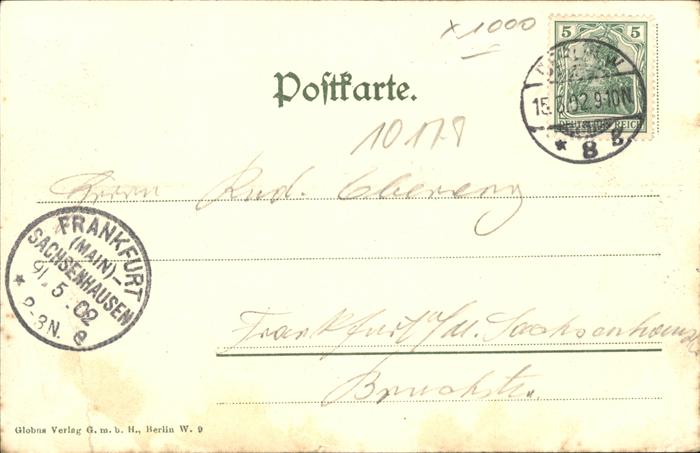 x 1000
5 5
BERLIN W.
15.8.02.9-10N
DEUTSCHES REICH
* 8 g
Postkarte.
10178
Herrn Rud.
FRANKFURT
(MAIN)-
SACHSENHAUSEN
5.02
2-3N.
* e
Frankfurt a/M. Sachsenhausen
Bruchstr.
Globus Verlag G. m. b. H., Berlin W. 9